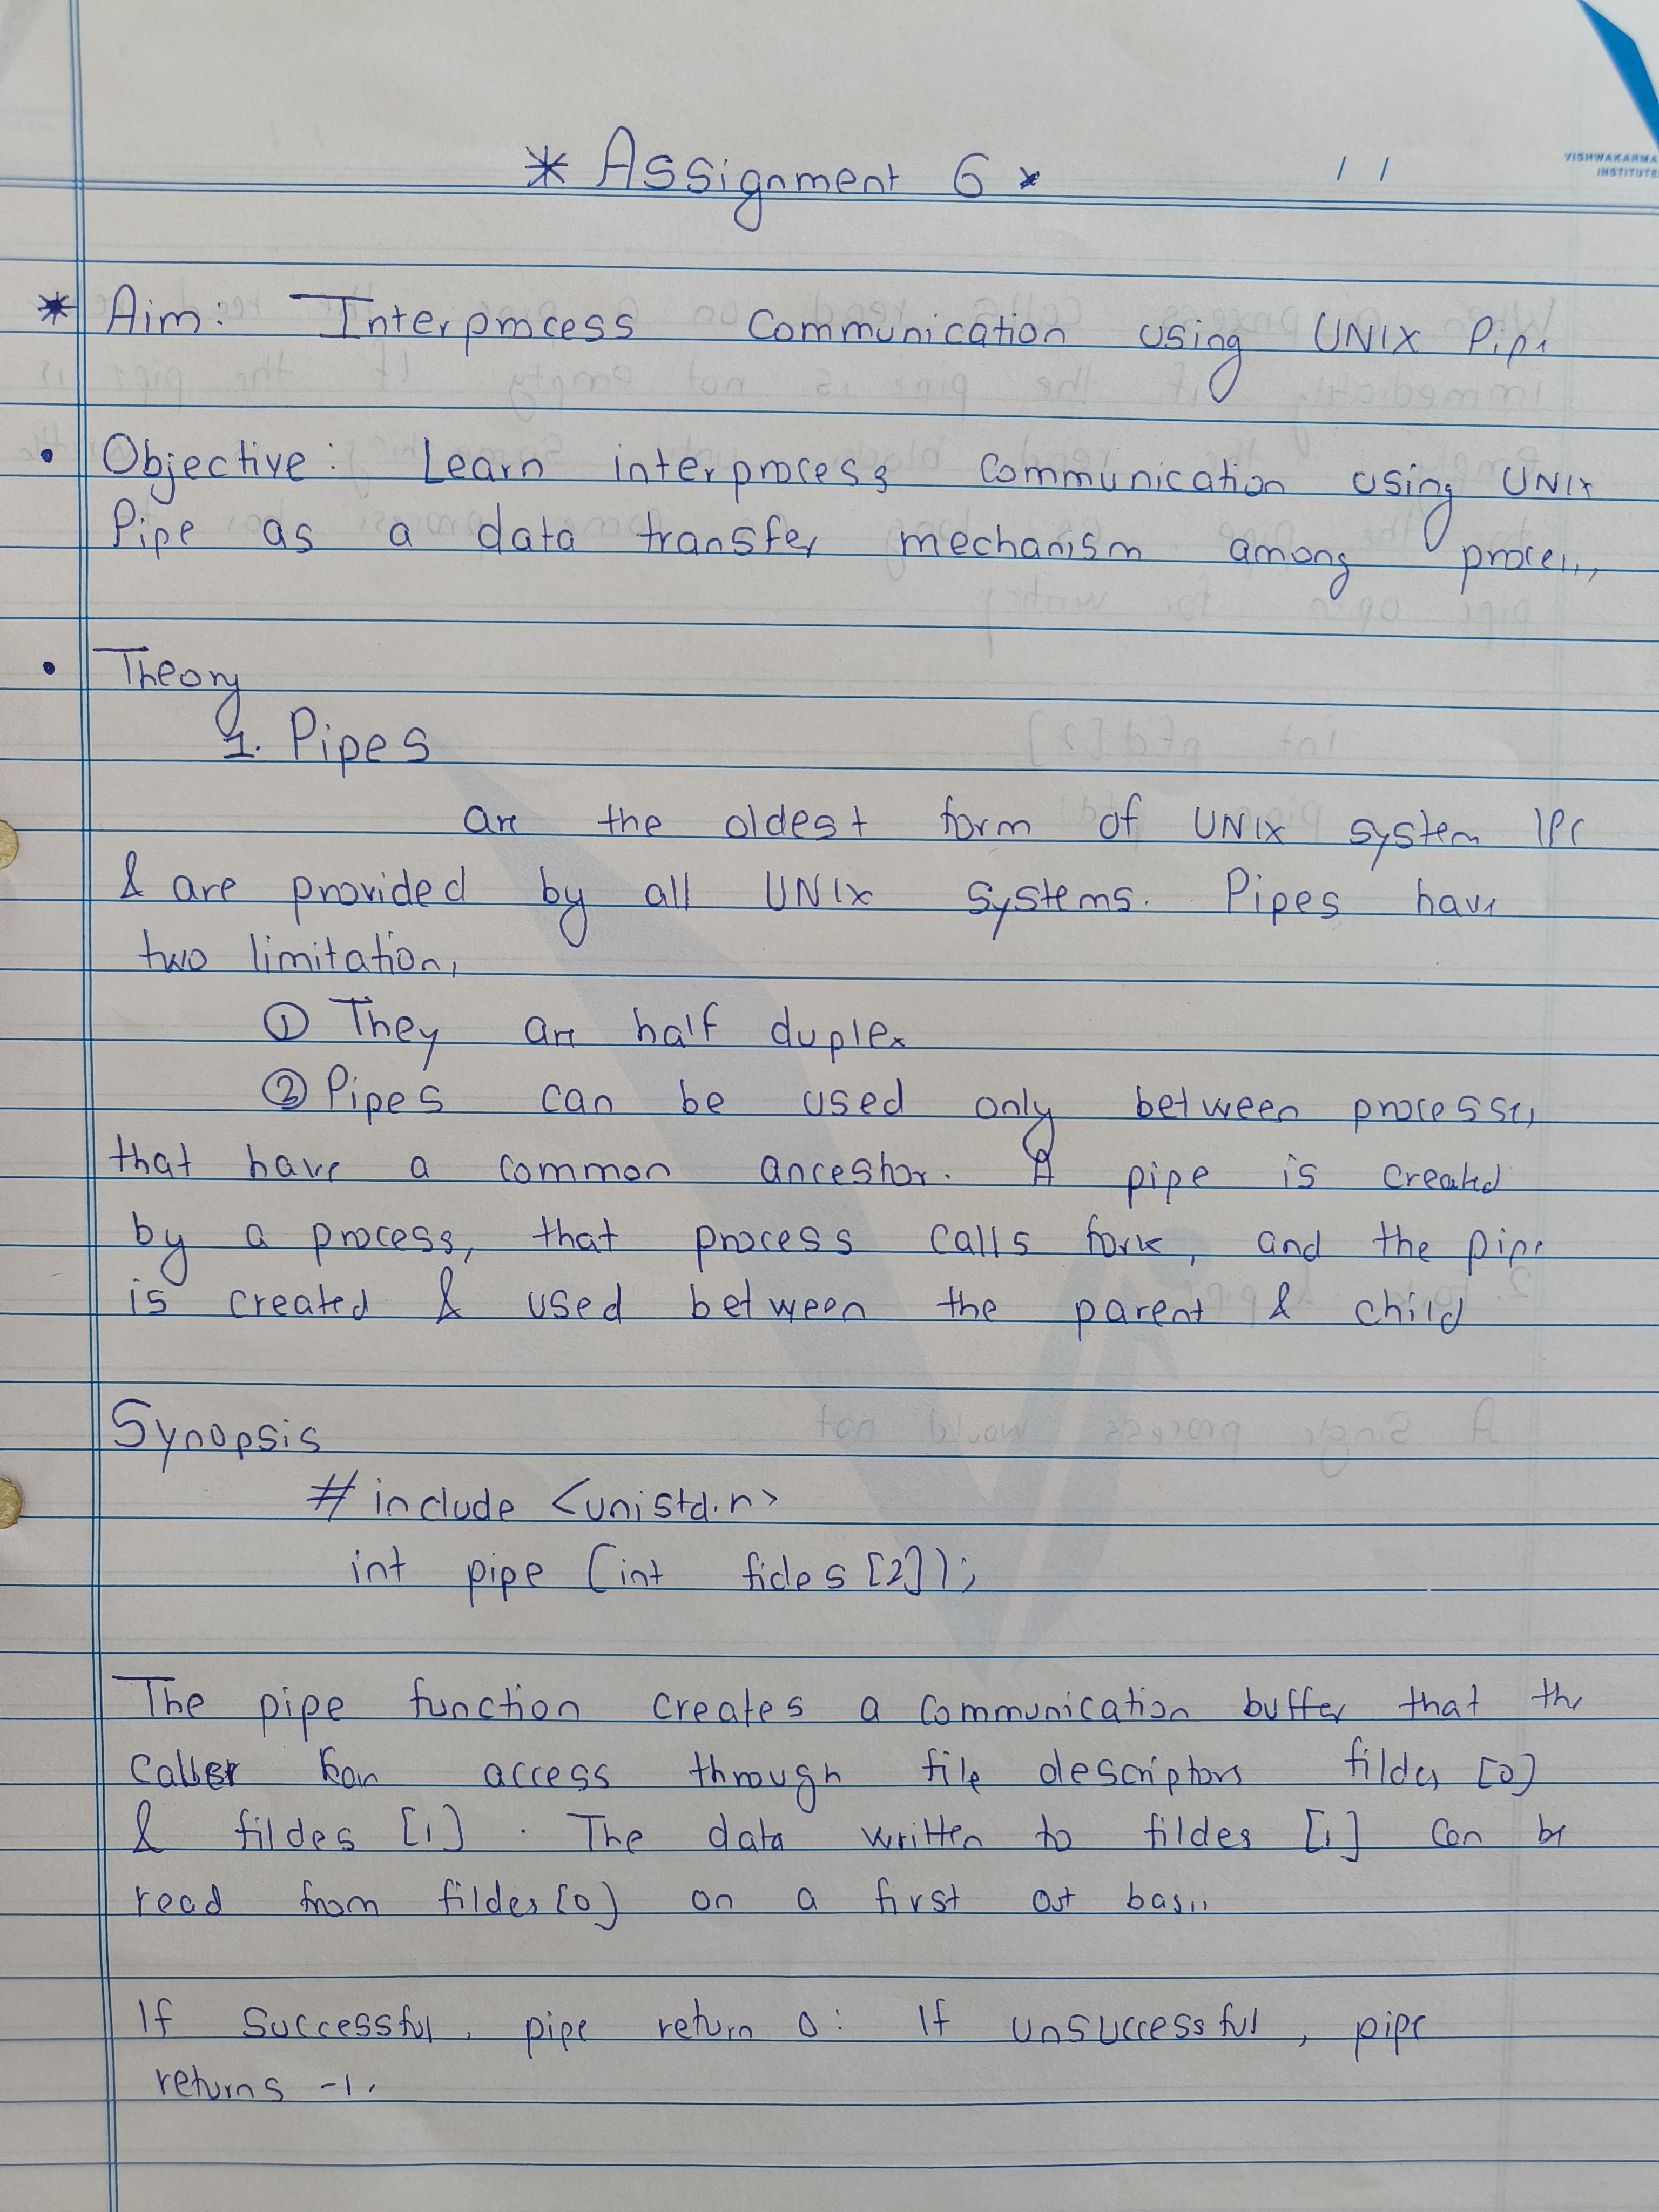 * Assignment 6 *
/ /
VISHWAKARMA
INSTITUTE
* Aim: Interprocess Communication using UNIX Pipe
• Objective: Learn interprocess communication using UNIX
Pipe as a data transfer mechanism among process
• Theory
1. Pipes
are the oldest form of UNIX system IPC
& are provided by all UNIX systems. Pipes have
two limitation,
① They are half duplex
② Pipes can be used only between processes
that have a common ancestor. A pipe is created
by a process, that process calls fork, and the pipe
is created & used between the parent & child
Synopsis
# include <unistd.h>
int pipe (int fides [2]);
The pipe function creates a communication buffer that the
caller can access through file descriptors fildes [0]
& fildes [1]. The data written to fildes [1] can be
read from fildes [0] on a first out basis
If Successful, pipe return 0: If unsuccessful, pipe
returns -1.